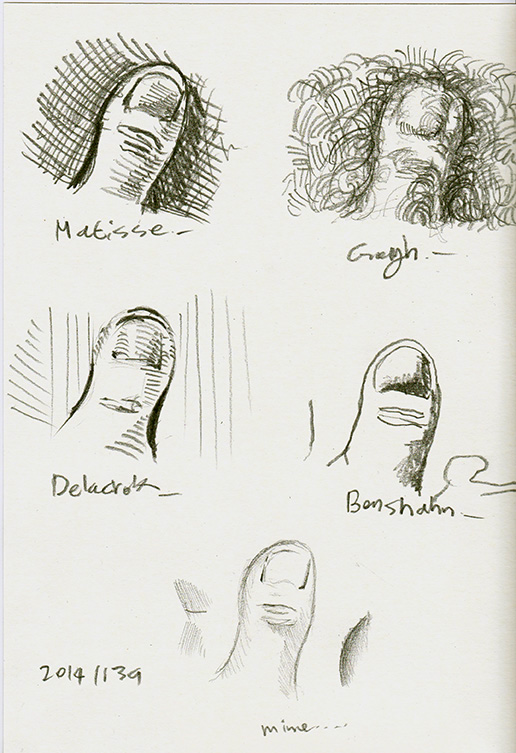 Matisse.-
Gogh.-
Delacroix-
Benshahn.-
2014/139
mine....